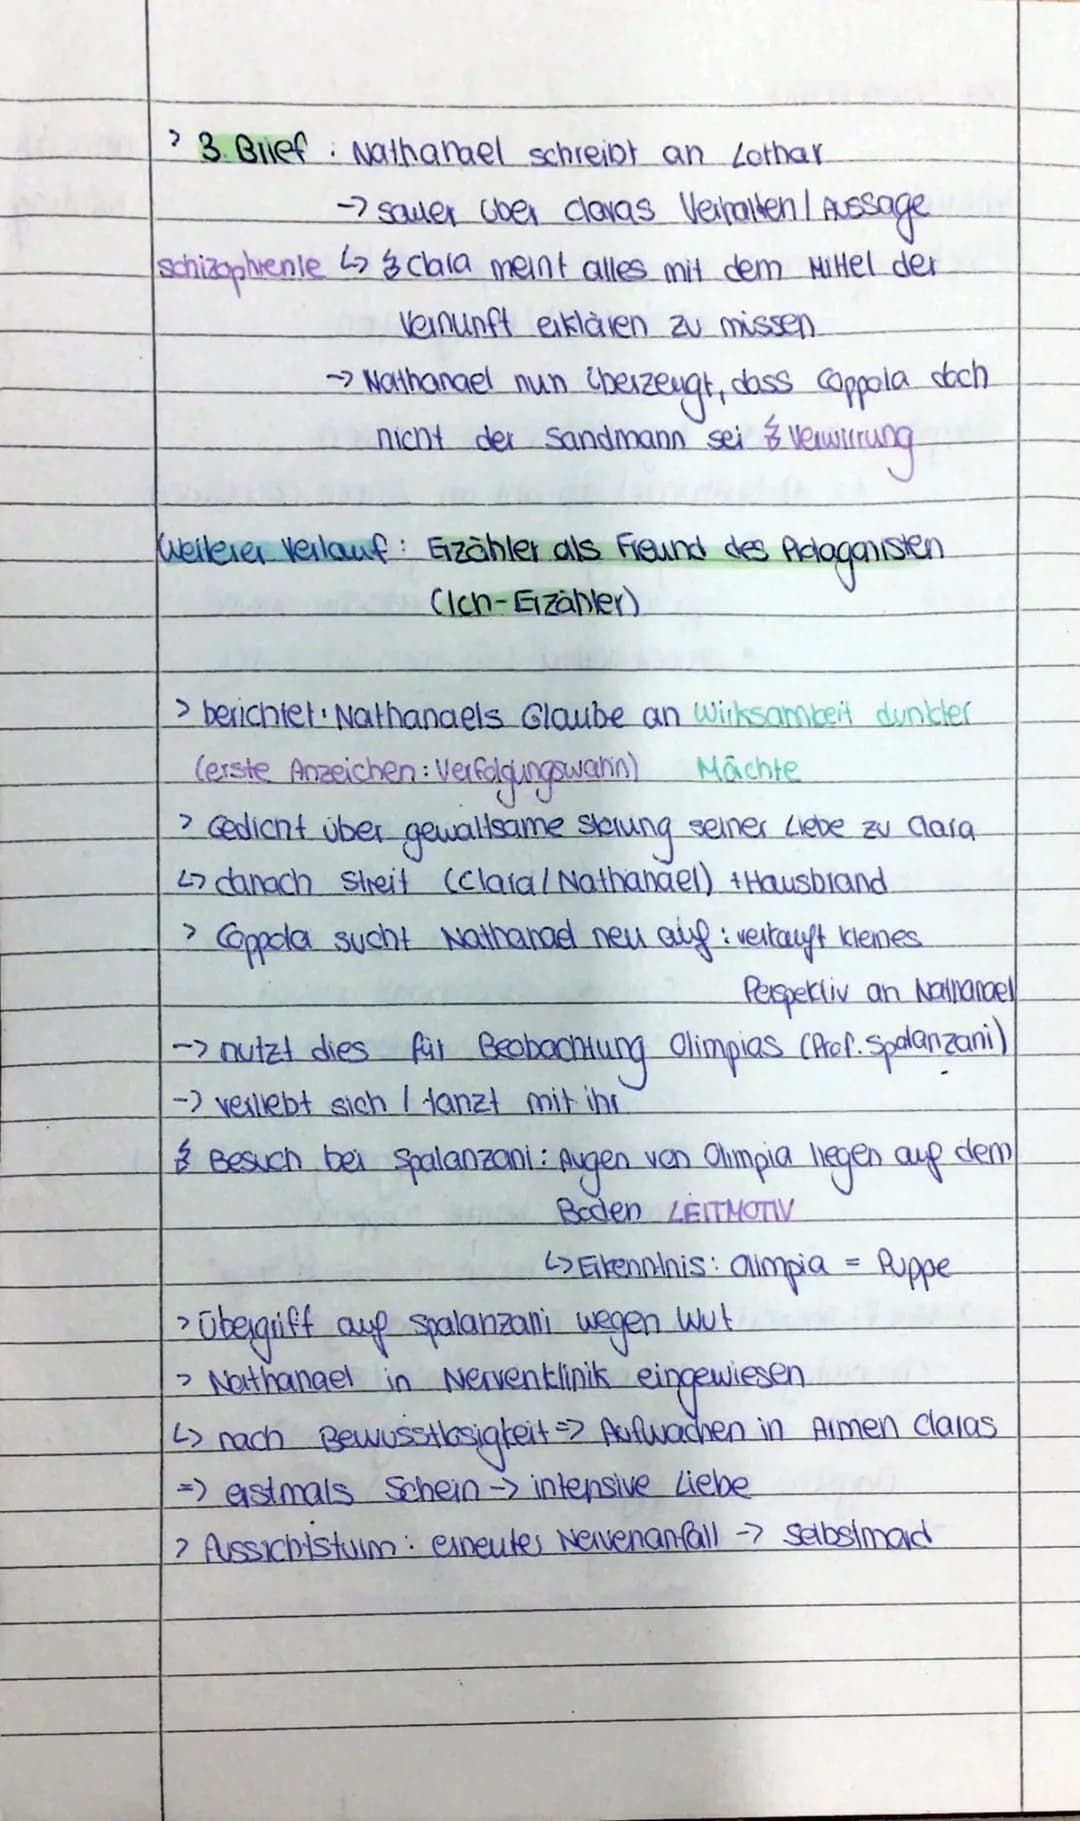 > 3. Brief : Nathanael schreibt an Lothar
-> sauer über Claras Verhalten / Aussage
schizophrenie ↳ ↯ Clara meint alles mit dem Mittel der
Vernunft erklären zu missen
-> Nathanael nun überzeugt, dass Coppola doch
nicht der Sandmann sei ↯ Verwirrung
Weiterer Verlauf : Erzähler als Freund des Potagonisten
(Ich-Erzähler)
> berichtet: Nathanaels Glaube an Wirksamkeit dunkler
(erste Anzeichen: Verfolgungswahn) Mächte
> Gedicht über gewaltsame Störung seiner Liebe zu Clara
↳ danach Streit (Clara / Nathanael) + Hausbrand
> Coppola sucht Nathanael neu auf : verkauft kleines
Perspektiv an Nathanael
-> nutzt dies für Beobachtung Olimpias (Prof. Spalanzani)
-> verliebt sich / tanzt mit ihr
↯ Besuch bei Spalanzani: Augen von Olimpia liegen auf dem
Boden LEITMOTIV
↳ Erkenntnis: Olimpia = Puppe
> Übergriff auf Spalanzani wegen Wut
> Nathanael in Nervenklinik eingewiesen
↳ nach Bewusstlosigkeit => Aufwachen in Armen Claras
=> erstmals Schein -> intensive Liebe
> Aussichtsturm : erneuter Nervenanfall -> Selbstmord